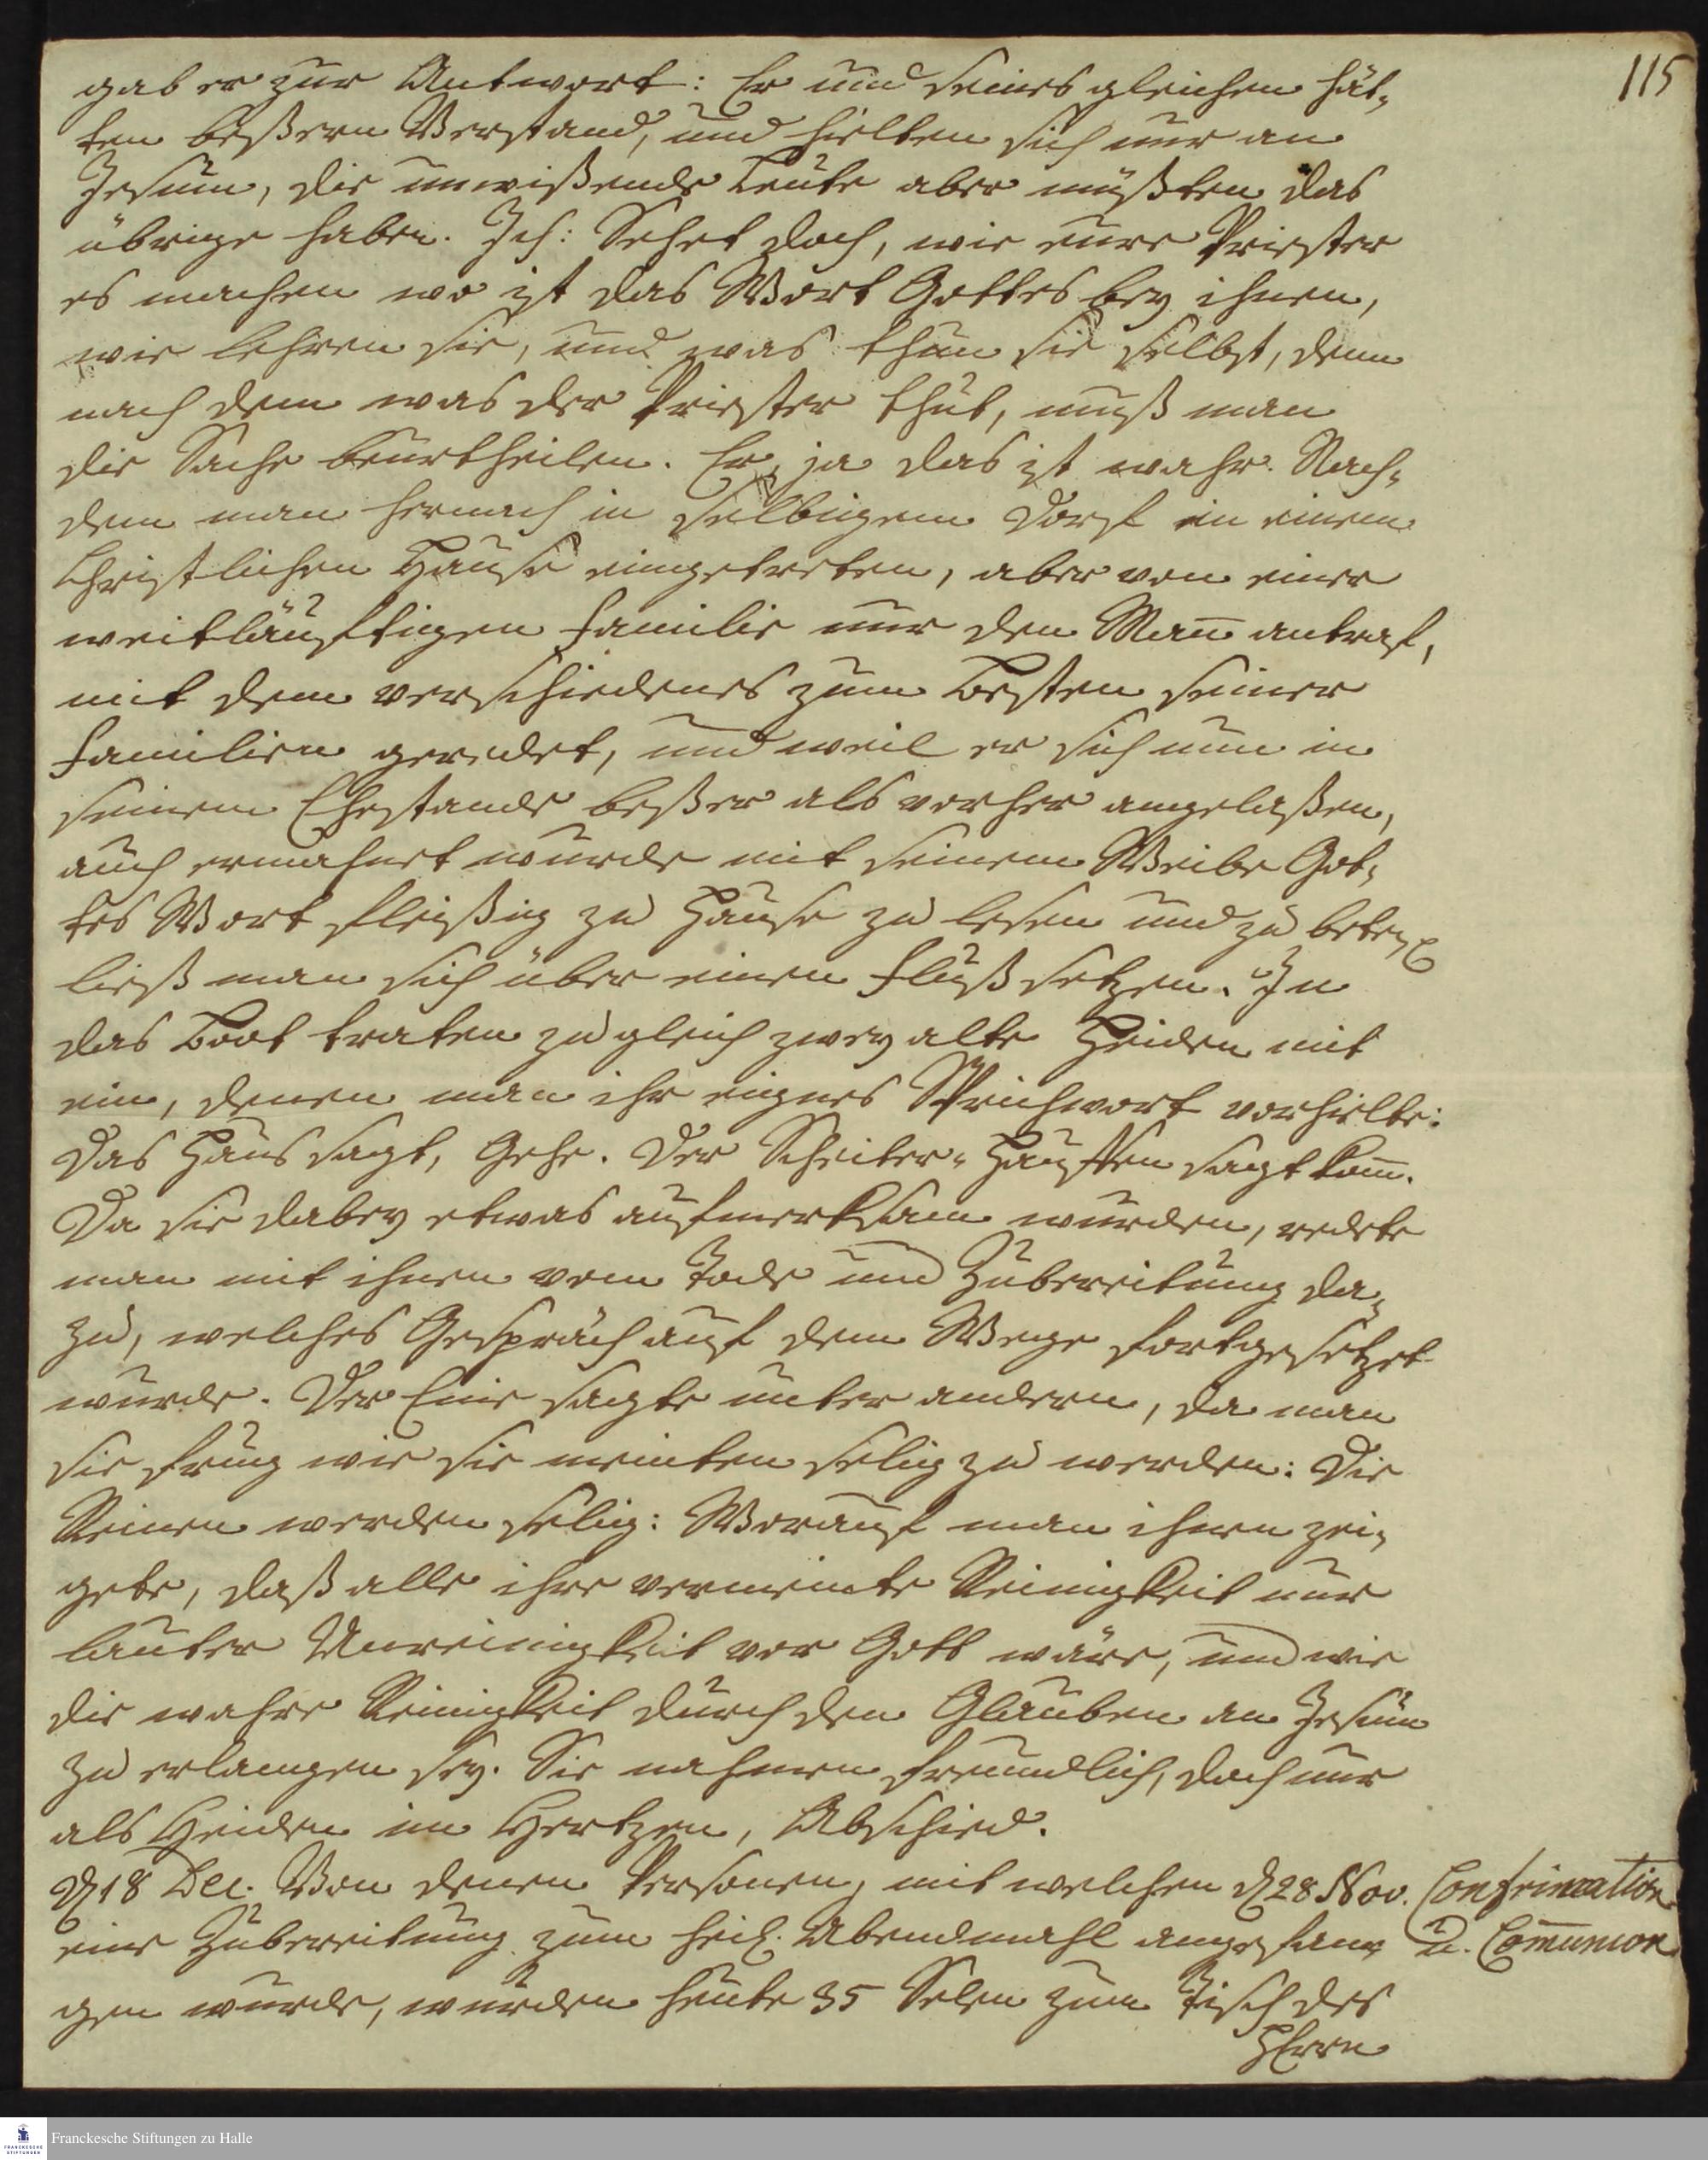 115
gab er zur Antwort: Er und seines gleichen hät-
ten beßern Verstand, und hielten sich nur an
Jesum, die unwißende Leute aber müßten das
übrige haben. Ich: Sehet doch, wie eure Priester
es machen wo ist das Wort Gottes bey ihnen,
wie lehren sie, und was thun sie selbst, denn
nach dem was der Priester thut, muß man
die Sache beurtheilen. Er, ja das ist wahr. Nach-
dem man hernach in selbigem Dorf in einem
Christlichen Hause eingetreten, aber von einer
weitläufftigen Familie nur den Mañ antraf,
mit dem verschiedenes zum Besten seiner
Familien geredet, und weil er sich nun in
seinem Ehestande beßer als vorher angelaßen,
auch ermahnet wurde mit seinem Weibe Got-
tes Wort fleißig zu Hause zu lesen und zu beten
ließ man sich über einen Fluß setzen. In
das Boot traten zugleich zwey alte Heiden mit
ein, denen man ihr eignes Sprichwort vorhielte:
Das Haus sagt, Gehe. Der Scheiter-Hauffen sagt kom̄.
Da sie dabey etwas aufmerksam wurden, redete
man mit ihnen vom Tode und Zubereitung da-
zu, welches Gespräch auf dem Wege fortgesetzet
wurde. Der Eine sagte unter andern, da man
sie frug wie sie meinten selig zu werden: Die
Reinen werden selig: Worauf man ihnen zei-
gete, daß alle ihre vermeinte Reinigkeit nur
lauter Unreinigkeit vor Gott wäre, und wie
die wahre Reinigkeit durch den Glauben an Jesum
zu erlangen sey. Sie nahmen freundlich, doch nur
als Heiden im Hertzen, Abschied.
D 18 Dec. Von denen Personen, mit welchen d 28 Nov.
eine Zubereitung zum heil. Abendmahl angefan-
gen wurde, wurden heute 35 Selen zum Tisch des
HErrn
Confirmation
u. Com̄union
Franckesche Stiftungen zu Halle